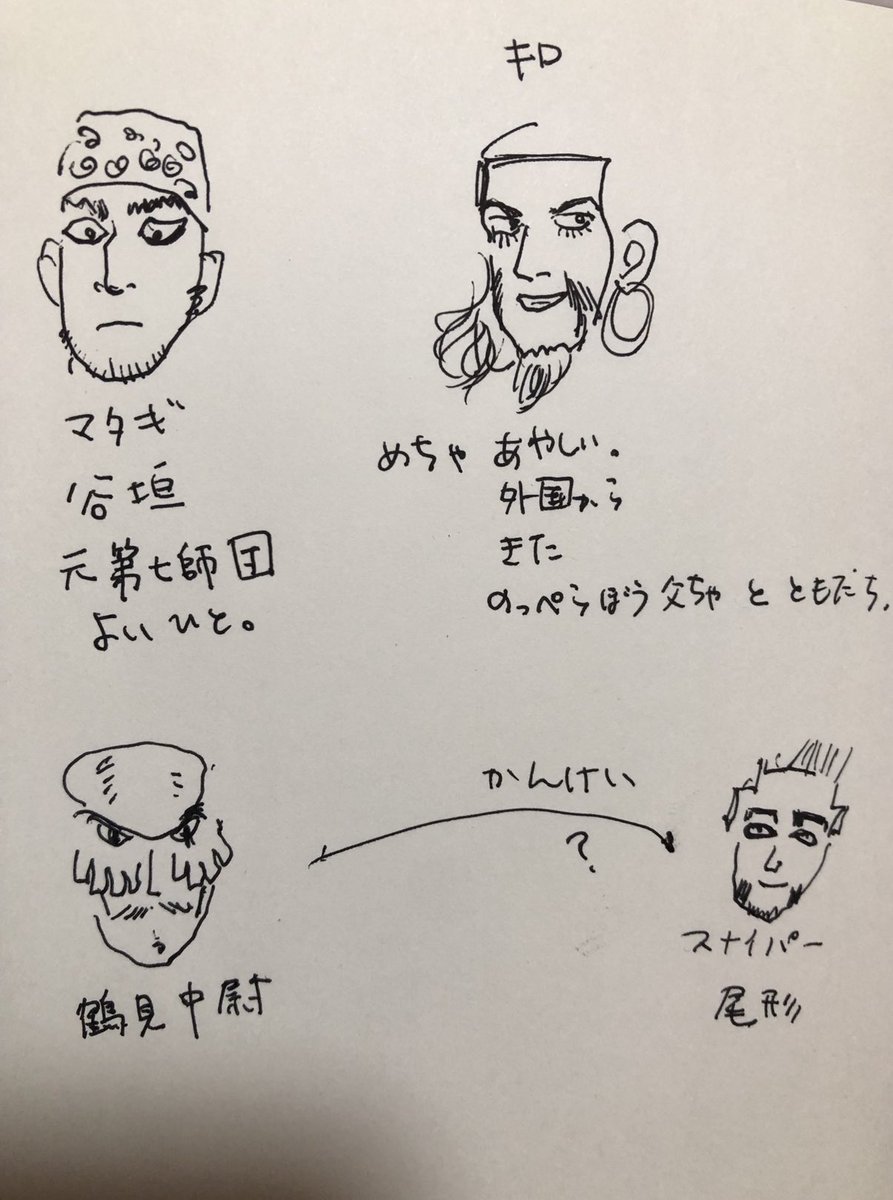 キロ
マタギ
谷垣
元第七師団
よいひと。
めちゃ あやしい。
外国から
きた
のっぺらぼう父ちゃ と ともだち。
かんけい
?
鶴見中尉
スナイパー
尾形